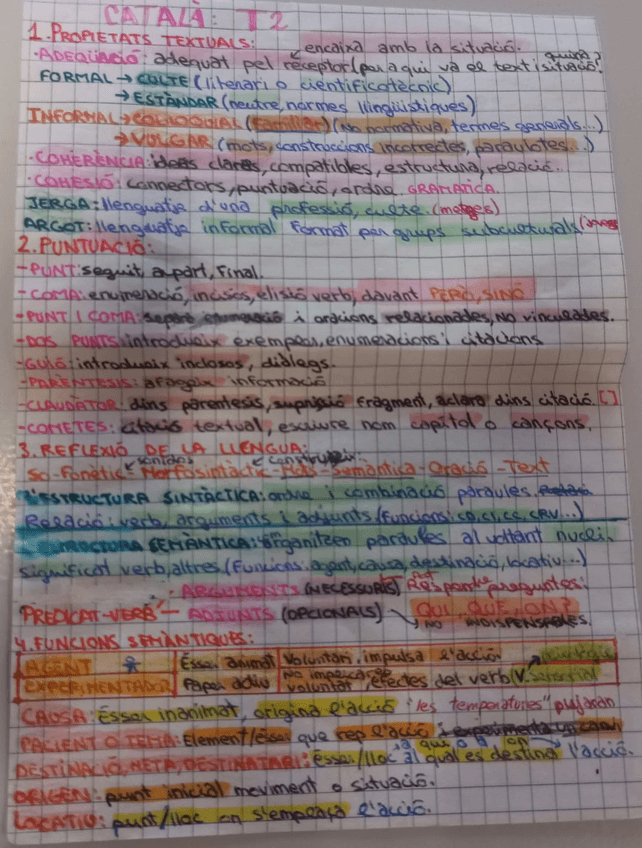 CATALÀ: T2
1. PROPIETATS TEXTUALS: encaixa amb la situació.
·ADEQUACIÓ: adequat pel receptor (per a qui va el text i situació. quina?
FORMAL → CULTE (literari o cientificotècnic)
→ ESTÀNDAR (neutre, normes llingüístiques)
INFORMAL → COL·LOQUIAL (familiar) (No normativa, termes generals...)
→ VULGAR (mots, construccions incorrectes, paraulotes...)
·COHERÈNCIA: idees clares, compatibles, estructura, relació.
·COHESIÓ: connectors, puntuació, ordre GRAMATICA.
JERGA: llenguatge d'una professió, culte. (metges)
ARGOT: llenguatge informal format per grups subculturals
2. PUNTUACIÓ:
-PUNT: seguit, apart, final.
-COMA: enumeració, incisos, elisió verb, davant PERÒ, SINÓ
-PUNT I COMA: separa enumeració i oracions relacionades, NO vinculades.
-DOS PUNTS: introdueix exemples, enumeracions i citacions
-GUIÓ: introdueix incisos, diàlegs.
-PARÈNTESIS: afegeix informació
-CLAUDÀTOR: dins parèntesis, supressió fragment, aclara dins citació. []
-COMETES: citació textual, escriure nom capítol o cançons.
3. REFLEXIÓ DE LA LLENGUA:
sonidos construir
So-Fonètic-Morfosintàctic-Mots-Semàntica-Oració-Text
ESTRUCTURA SINTÀCTICA: ordre i combinació paraules.
Relació: verb, arguments i adjunts (Funcions: CD, CI, CC, CRV...)
ESTRUCTURA SEMÀNTICA: organitzen paraules al voltant nucli,
significat verb, altres (Funcions: agent, causa, destinació, locatiu...)
PREDICAT-VERB - ARGUMENTS (NECESSARIS) Respondre preguntes:
ADJUNTS (OPCIONALS) QUI, QUE, ON?
NO INDISPENSABLES.
4. FUNCIONS SEMÀNTIQUES:
AGENT Ésser animat Voluntari, impulsa l'acció
EXPERIMENTADOR Paper actiu No impulsa voluntat, efectes del verb (V.
CAUSA: Ésser inanimat, origina l'acció "les temperatures" pujaran
PACIENT O TEMA: Element/ésser que rep l'acció
a qui o a on
DESTINACIÓ, META, DESTINATARI: ésser/lloc al qual es destina l'acció.
ORIGEN: punt inicial moviment o situació.
LOCATIU: punt/lloc on s'empeaça l'acció.